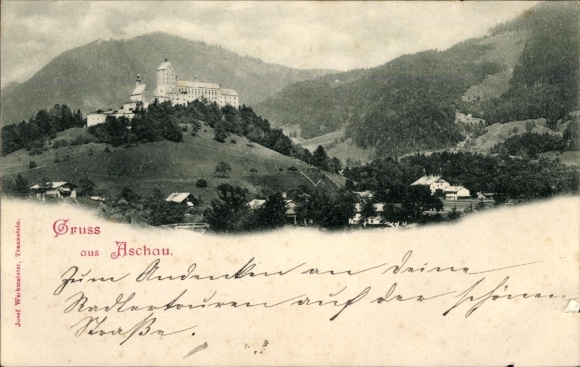 Gruss
aus Aschau.
Zum Andenken an deine
Radlertouren auf der schönen
Straße.
Josef Werkmeister, Traunstein.